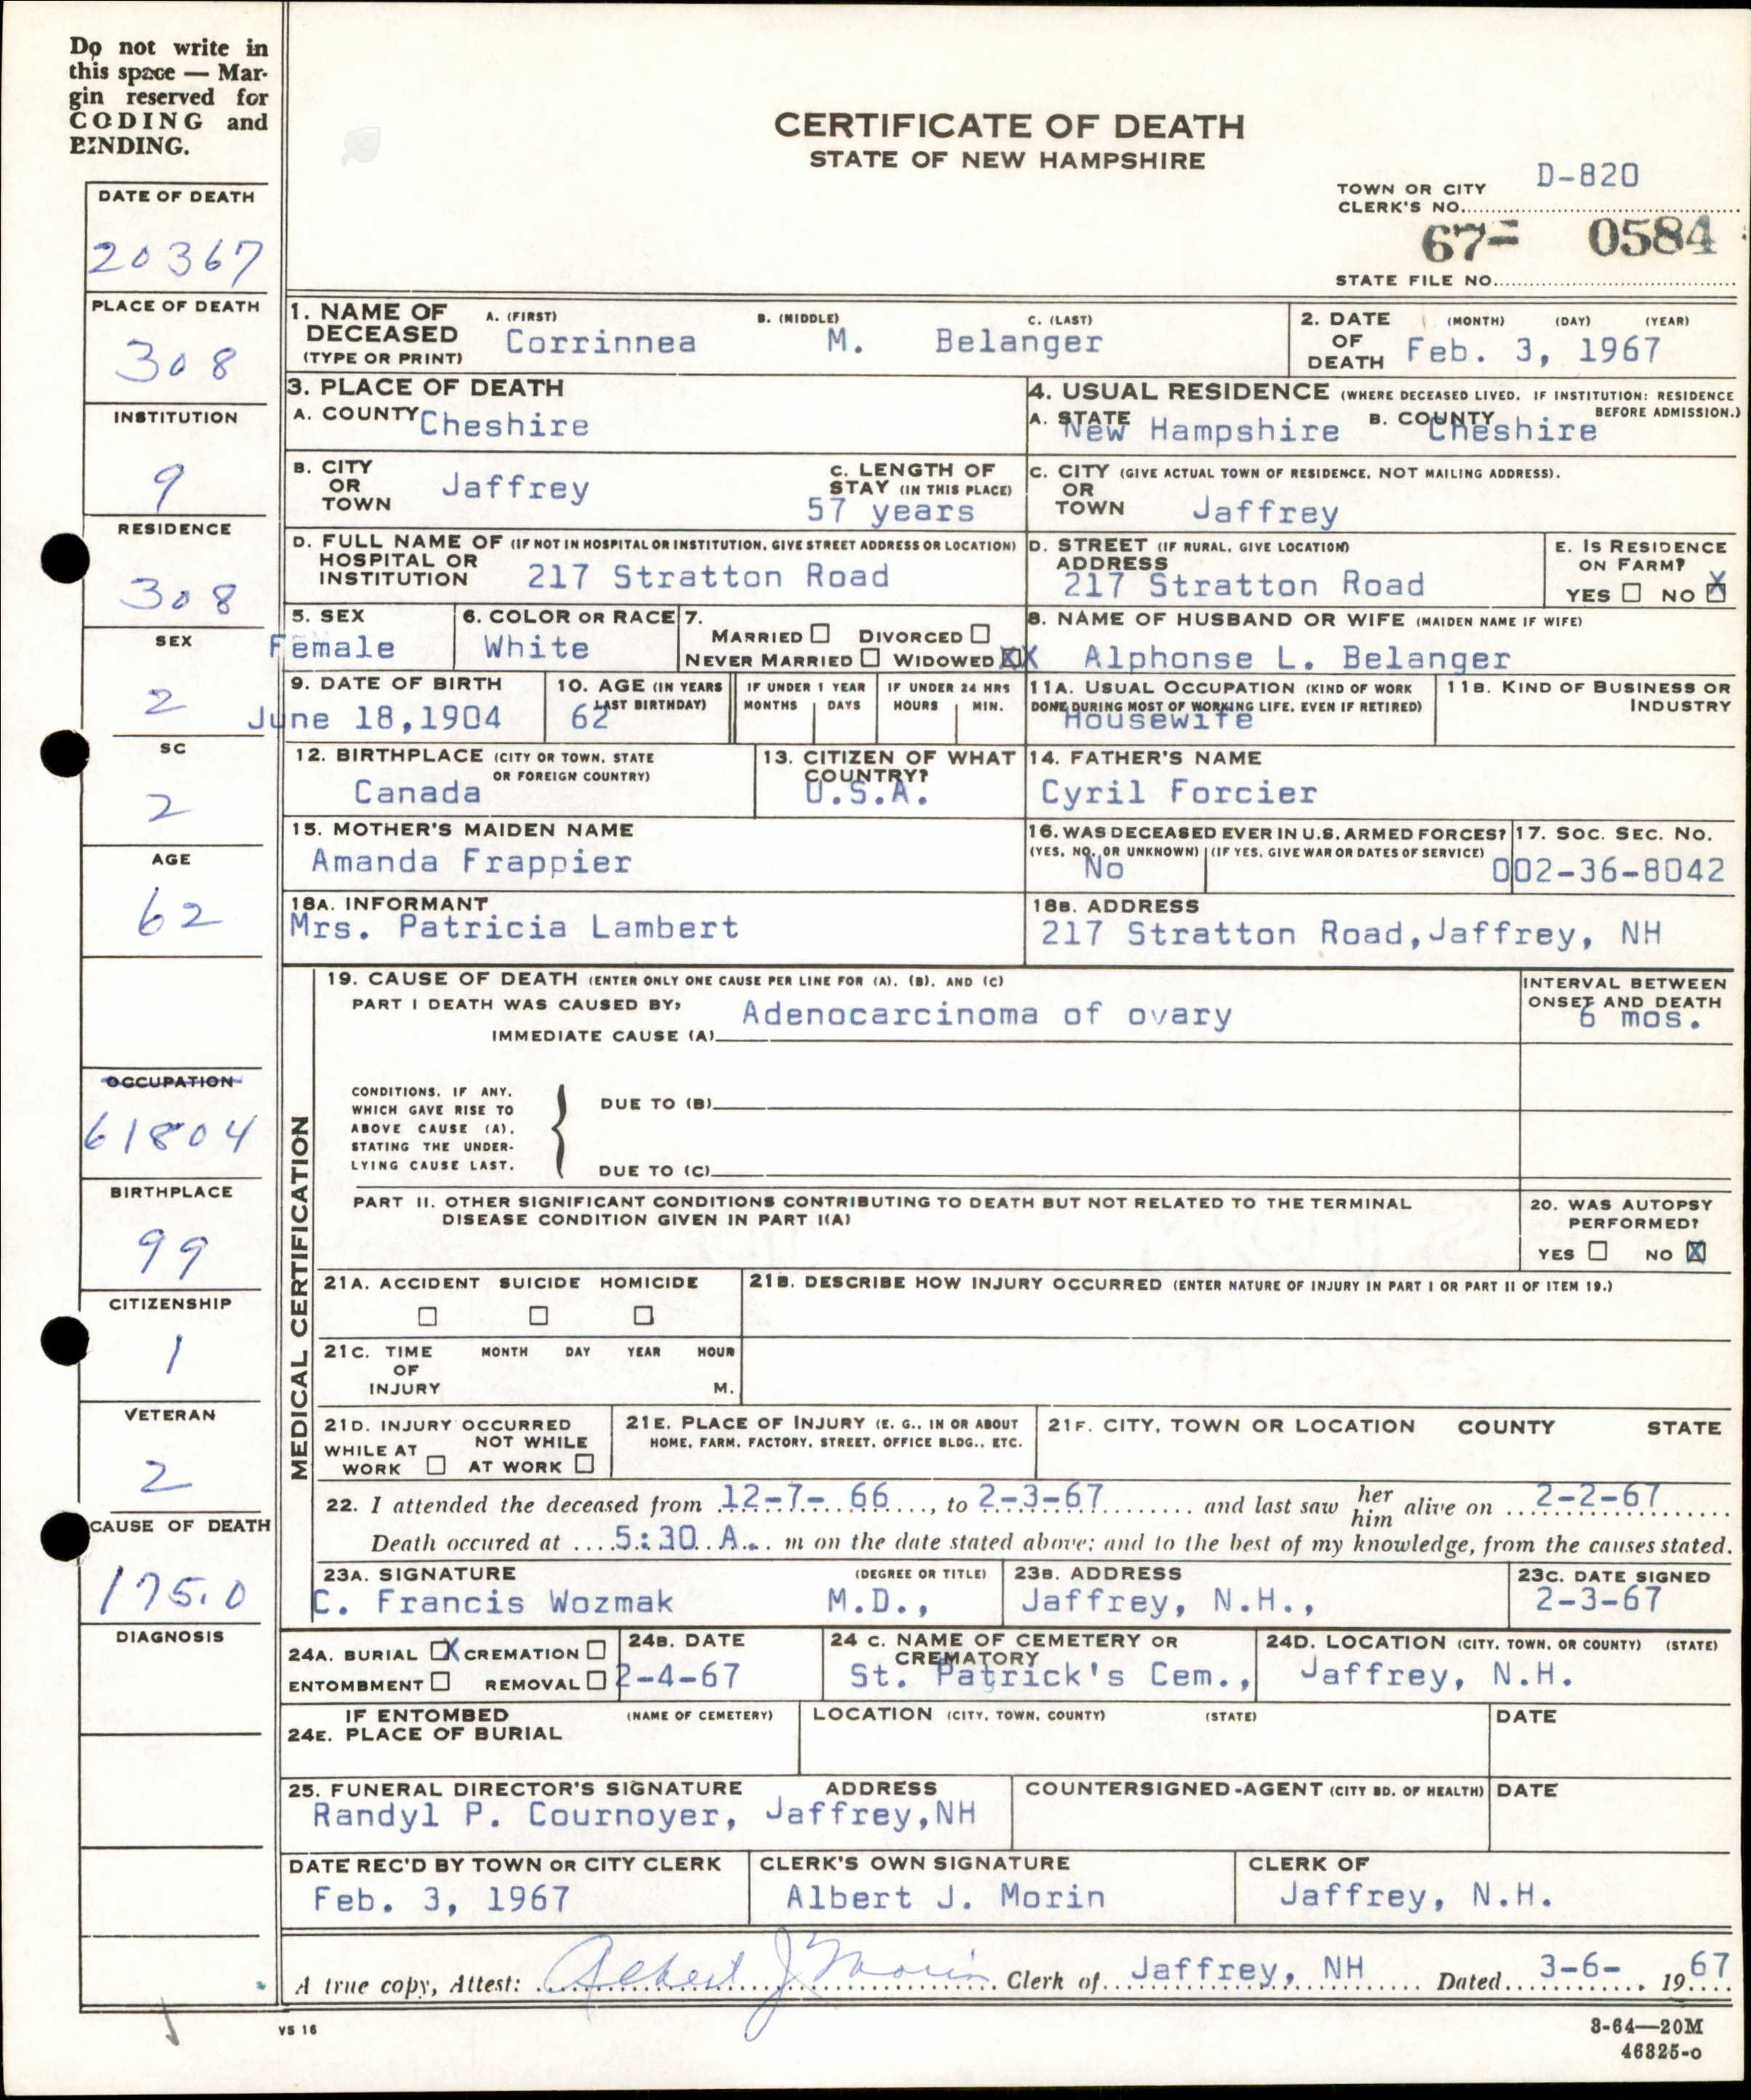 Do not write in
this space — Mar-
gin reserved for
CODING and
BINDING.
CERTIFICATE OF DEATH
STATE OF NEW HAMPSHIRE
TOWN OR CITY
CLERK'S NO. D-820
67- 0584
STATE FILE NO.
DATE OF DEATH
20367
PLACE OF DEATH
308
INSTITUTION
9
RESIDENCE
308
SEX
2
SC
2
AGE
62
OCCUPATION
61804
BIRTHPLACE
99
CITIZENSHIP
1
VETERAN
2
CAUSE OF DEATH
175.0
DIAGNOSIS
1. NAME OF DECEASED (TYPE OR PRINT) A. (FIRST) B. (MIDDLE) C. (LAST)
Corrinnea M. Belanger
2. DATE OF DEATH (MONTH) (DAY) (YEAR)
Feb. 3, 1967
3. PLACE OF DEATH
A. COUNTY Cheshire
4. USUAL RESIDENCE (WHERE DECEASED LIVED. IF INSTITUTION: RESIDENCE BEFORE ADMISSION.)
A. STATE New Hampshire B. COUNTY Cheshire
B. CITY OR TOWN Jaffrey
C. LENGTH OF STAY (IN THIS PLACE) 57 years
C. CITY (GIVE ACTUAL TOWN OF RESIDENCE, NOT MAILING ADDRESS).
OR TOWN Jaffrey
D. FULL NAME OF (IF NOT IN HOSPITAL OR INSTITUTION, GIVE STREET ADDRESS OR LOCATION)
HOSPITAL OR INSTITUTION 217 Stratton Road
D. STREET (IF RURAL, GIVE LOCATION)
ADDRESS 217 Stratton Road
E. IS RESIDENCE ON FARM?
YES NO X
5. SEX
Female
6. COLOR OR RACE
White
7. MARRIED DIVORCED
NEVER MARRIED WIDOWED XX
8. NAME OF HUSBAND OR WIFE (MAIDEN NAME IF WIFE)
Alphonse L. Belanger
9. DATE OF BIRTH
June 18,1904
10. AGE (IN YEARS LAST BIRTHDAY)
62
IF UNDER 1 YEAR
MONTHS DAYS
IF UNDER 24 HRS
HOURS MIN.
11A. USUAL OCCUPATION (KIND OF WORK DONE DURING MOST OF WORKING LIFE, EVEN IF RETIRED)
Housewife
11B. KIND OF BUSINESS OR INDUSTRY
12. BIRTHPLACE (CITY OR TOWN, STATE OR FOREIGN COUNTRY)
Canada
13. CITIZEN OF WHAT COUNTRY?
U.S.A.
14. FATHER'S NAME
Cyril Forcier
15. MOTHER'S MAIDEN NAME
Amanda Frappier
16. WAS DECEASED EVER IN U.S. ARMED FORCES?
(YES, NO, OR UNKNOWN) (IF YES, GIVE WAR OR DATES OF SERVICE)
No
17. SOC. SEC. NO.
002-36-8042
18A. INFORMANT
Mrs. Patricia Lambert
18B. ADDRESS
217 Stratton Road,Jaffrey, NH
MEDICAL CERTIFICATION
19. CAUSE OF DEATH (ENTER ONLY ONE CAUSE PER LINE FOR (A), (B), AND (C)
PART I DEATH WAS CAUSED BY:
IMMEDIATE CAUSE (A) Adenocarcinoma of ovary
INTERVAL BETWEEN ONSET AND DEATH
6 mos.
CONDITIONS, IF ANY,
WHICH GAVE RISE TO
ABOVE CAUSE (A),
STATING THE UNDER-
LYING CAUSE LAST.
DUE TO (B)
DUE TO (C)
PART II. OTHER SIGNIFICANT CONDITIONS CONTRIBUTING TO DEATH BUT NOT RELATED TO THE TERMINAL
DISEASE CONDITION GIVEN IN PART I(A)
20. WAS AUTOPSY PERFORMED?
YES NO X
21A. ACCIDENT SUICIDE HOMICIDE
21B. DESCRIBE HOW INJURY OCCURRED (ENTER NATURE OF INJURY IN PART I OR PART II OF ITEM 19.)
21C. TIME OF INJURY MONTH DAY YEAR HOUR
M.
21D. INJURY OCCURRED
WHILE AT WORK NOT WHILE AT WORK
21E. PLACE OF INJURY (E. G., IN OR ABOUT
HOME, FARM, FACTORY, STREET, OFFICE BLDG., ETC.
21F. CITY, TOWN OR LOCATION COUNTY STATE
22. I attended the deceased from 12-7- 66, to 2-3-67 and last saw her him alive on 2-2-67
Death occured at 5:30 A. m on the date stated above; and to the best of my knowledge, from the causes stated.
23A. SIGNATURE (DEGREE OR TITLE)
C. Francis Wozmak M.D.,
23B. ADDRESS
Jaffrey, N.H.,
23C. DATE SIGNED
2-3-67
24A. BURIAL X CREMATION
ENTOMBMENT REMOVAL
24B. DATE
2-4-67
24 C. NAME OF CEMETERY OR CREMATORY
St. Patrick's Cem.,
24D. LOCATION (CITY, TOWN, OR COUNTY) (STATE)
Jaffrey, N.H.
IF ENTOMBED (NAME OF CEMETERY)
24E. PLACE OF BURIAL
LOCATION (CITY, TOWN, COUNTY) (STATE)
DATE
25. FUNERAL DIRECTOR'S SIGNATURE ADDRESS
Randyl P. Cournoyer, Jaffrey,NH
COUNTERSIGNED-AGENT (CITY BD. OF HEALTH)
DATE
DATE REC'D BY TOWN OR CITY CLERK
Feb. 3, 1967
CLERK'S OWN SIGNATURE
Albert J. Morin
CLERK OF
Jaffrey, N.H.
A true copy, Attest: Albert J Morin Clerk of Jaffrey, NH Dated 3-6- , 1967
VS 16
8-64—20M
46325-0